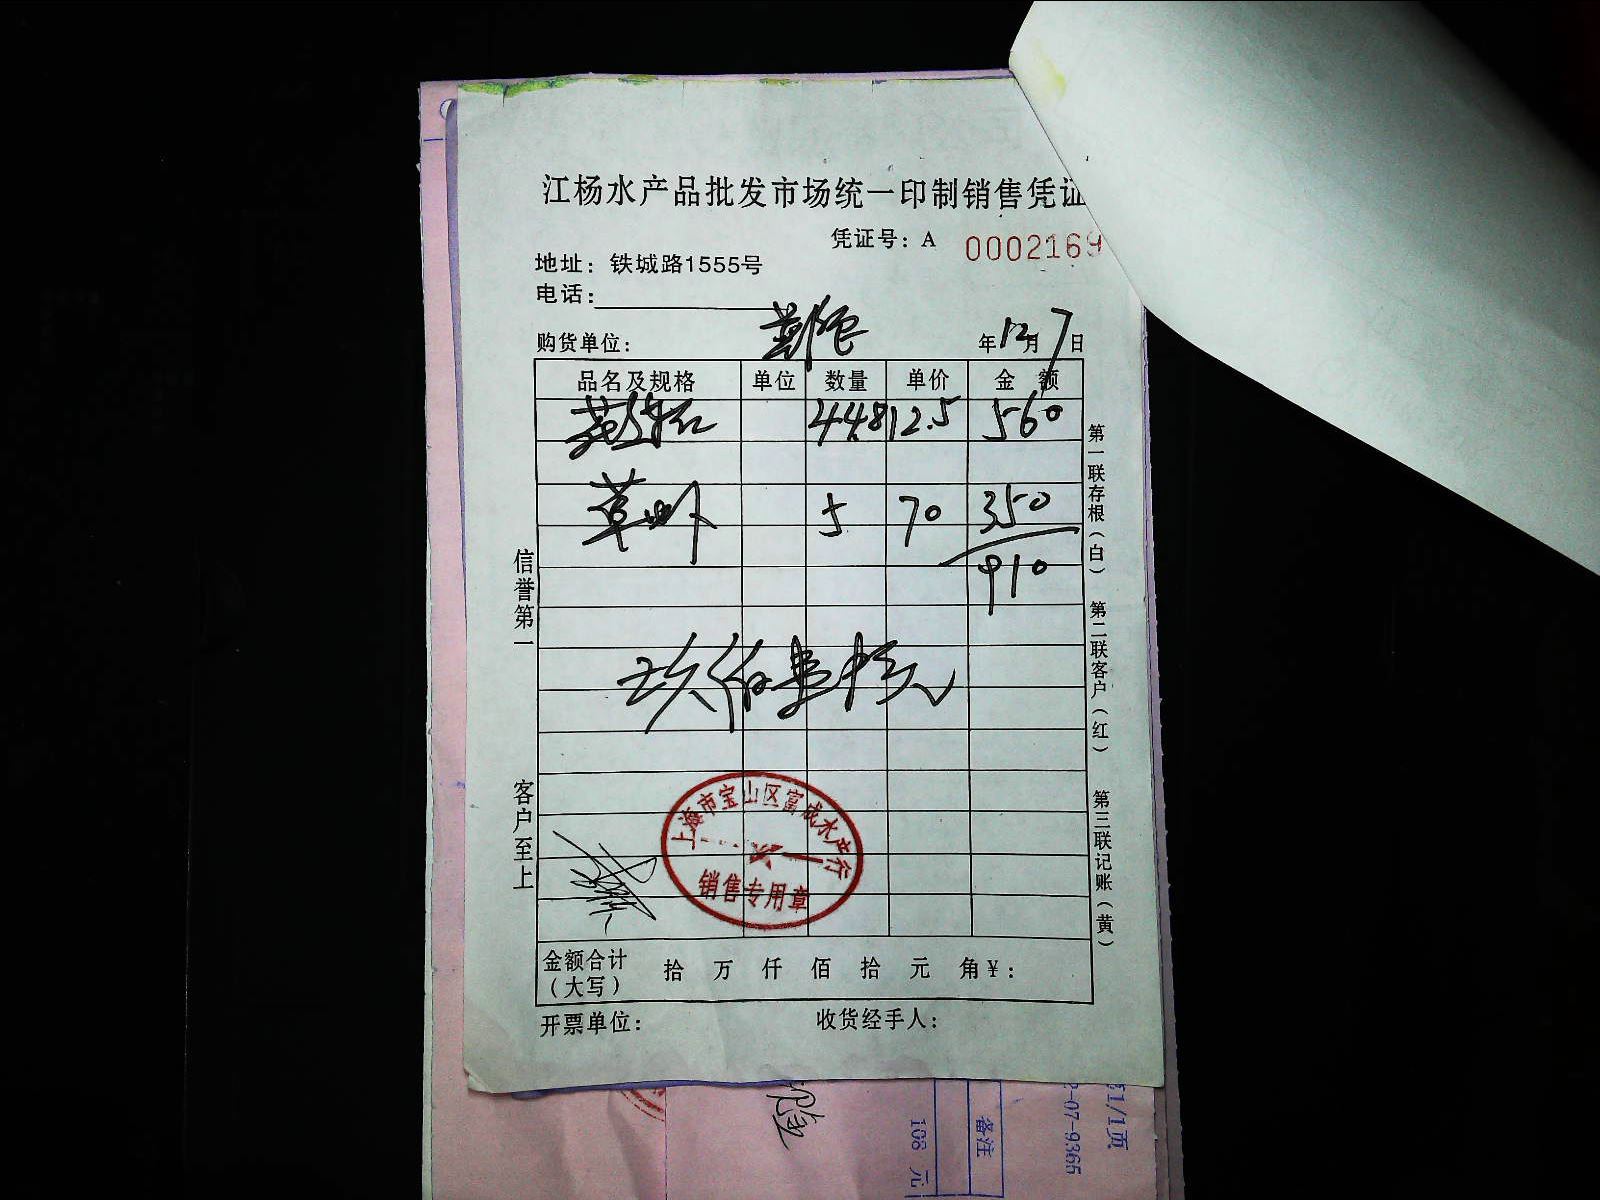 江杨水产品批发市场统一印制销售凭证
凭证号：A 0002169
地址：铁城路1555号
电话：
购货单位：
年12月7日
品名及规格 单位 数量 单价 金额
44.8 12.5 560
草虾 5 70 350
910
玖佰壹拾元
信誉第一
客户至上
第一联存根（白） 第二联客户（红） 第三联记账（黄）
上海市宝山区富成水产行
销售专用章
金额合计（大写） 拾 万 仟 佰 拾 元 角 ¥：
开票单位： 收货经手人：
备注
108 元
2-07-9365
1/1页